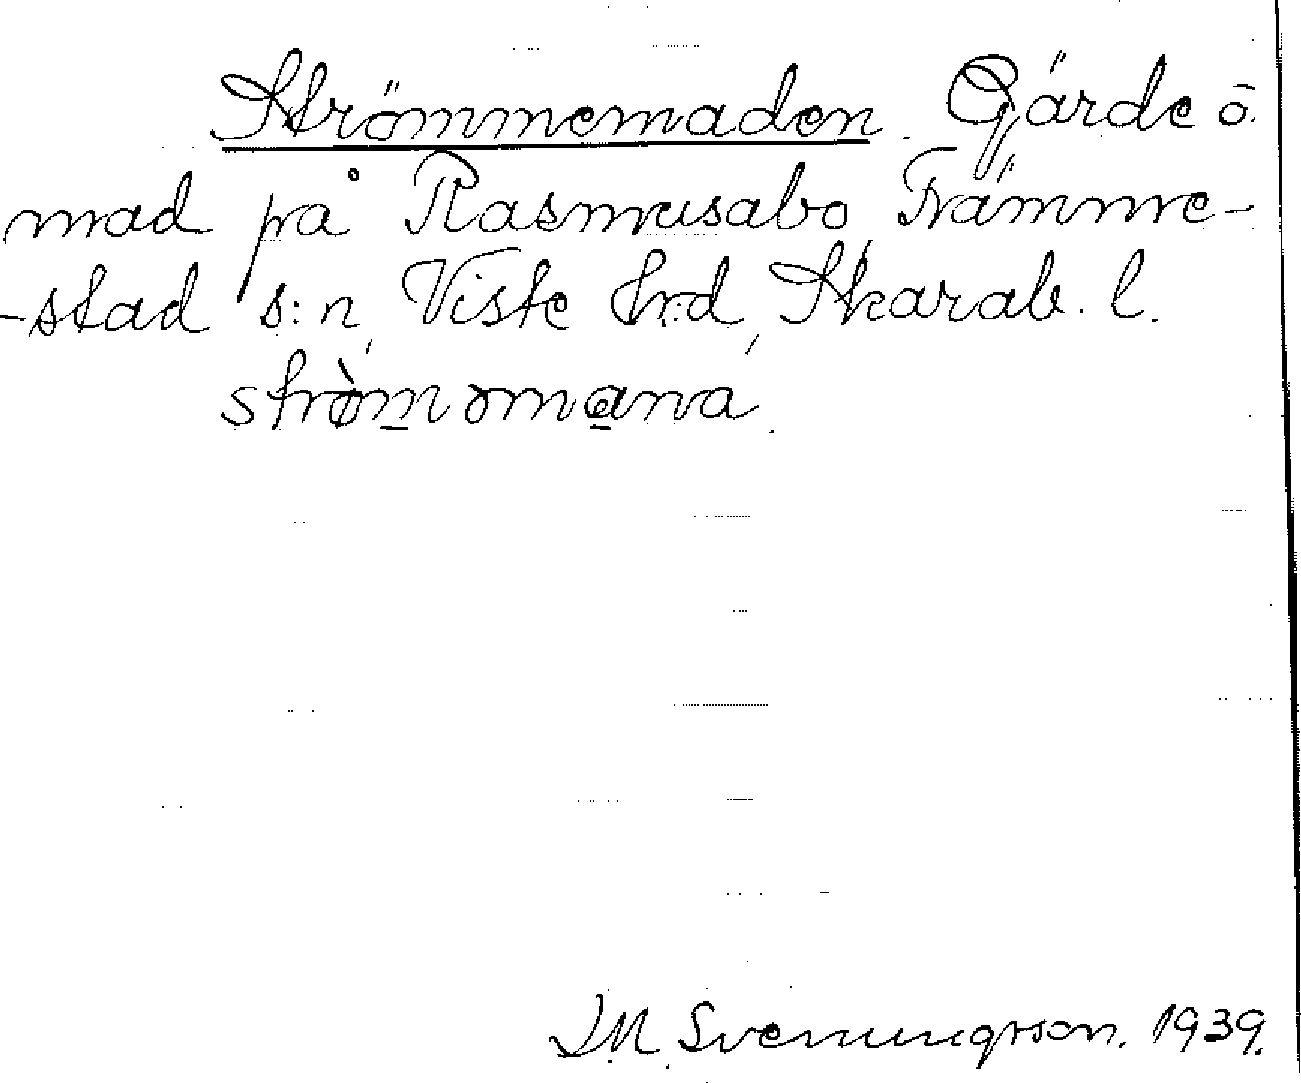 Strömmemaden. Gärde o.
mad på Rasmusabo Främme-
-stad s:n, Viste hrd, Skarab. l.
strøməmana.
I.M. Svenungsson. 1939.